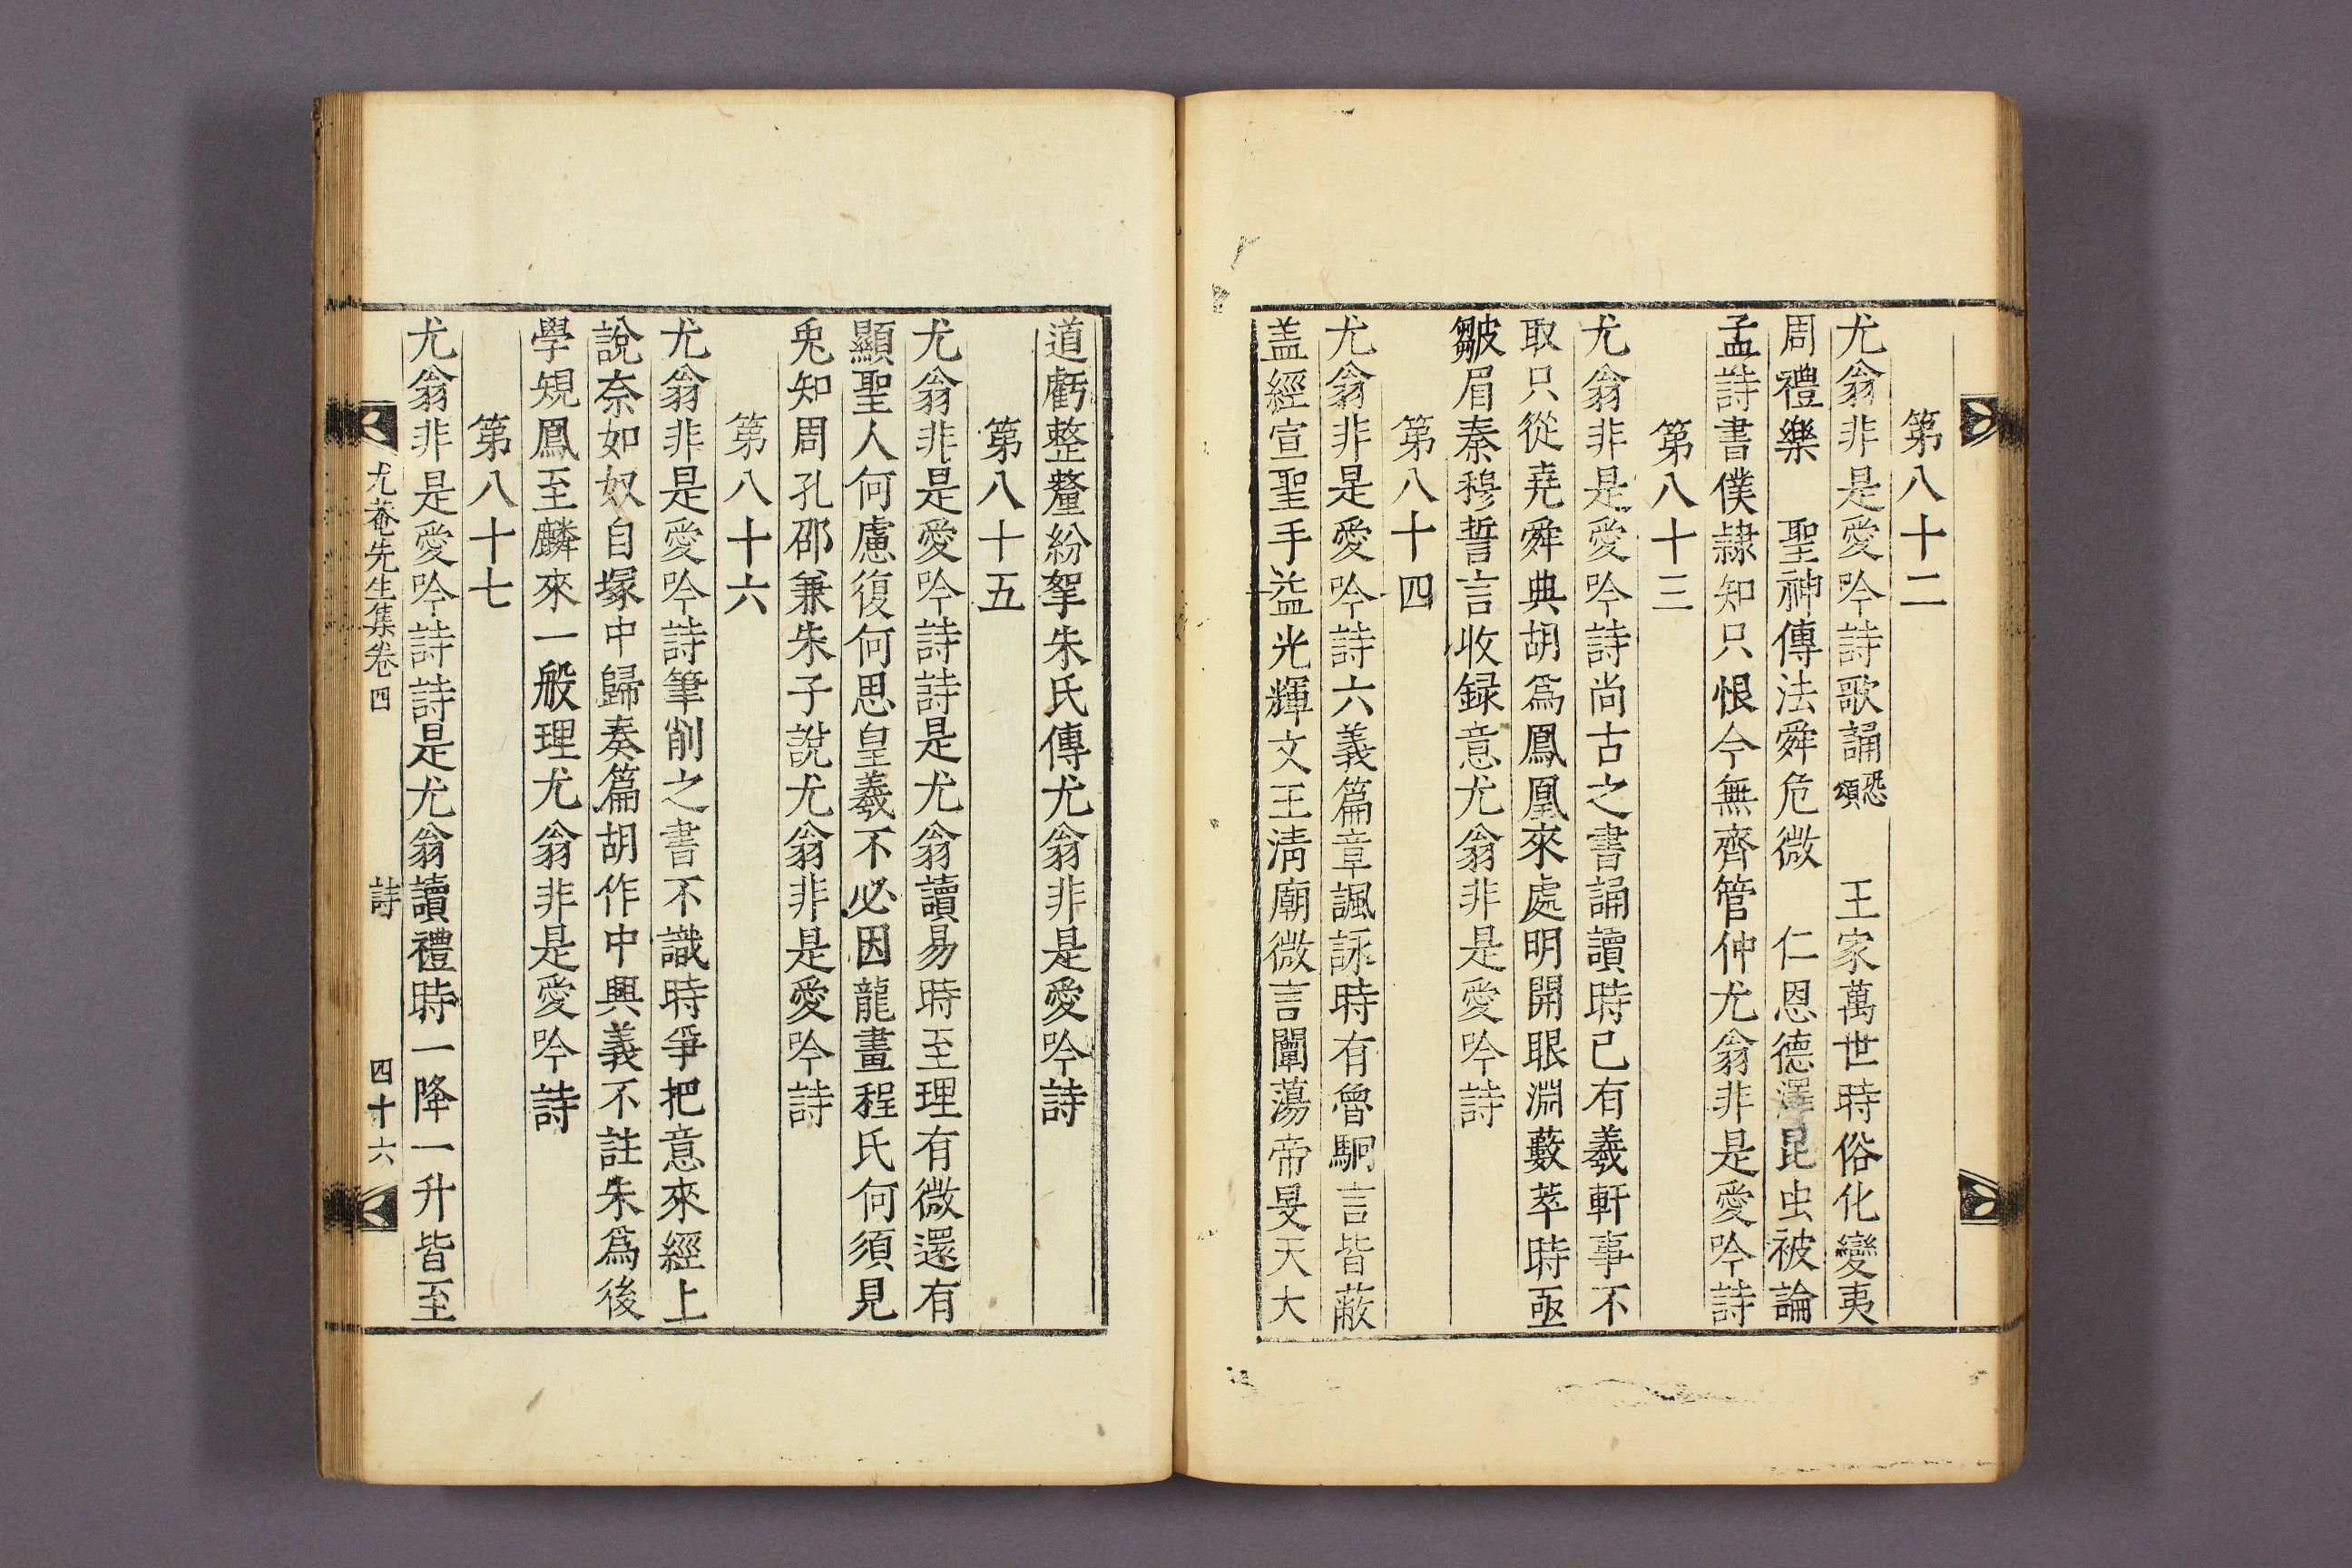 第八十二
尤翁非是愛吟詩歌誦恐頌 王家萬世時俗化變夷
周禮樂 聖神傳法舜危微 仁恩德澤昆虫被論
孟詩書僕隷知只恨今無齊管仲尤翁非是愛吟詩
第八十三
尤翁非是愛吟詩尚古之書誦讀時已有羲軒事不
取只從堯舜典胡爲鳳凰來處明開眼淵藪萃時亟
皺眉秦穆誓言收録意尤翁非是愛吟詩
第八十四
尤翁非是愛吟詩六義篇章諷詠時有魯駉言皆蔽
盖經宣聖手益光輝文王淸廟微言闡蕩帝旻天大
道虧整釐紛挐朱氏傳尤翁非是愛吟詩
第八十五
尤翁非是愛吟詩詩是尤翁讀易時至理有微還有
顯聖人何慮復何思皇羲不必因龍畫程氏何須見
兎知周孔邵兼朱子說尤翁非是愛吟詩
第八十六
尤翁非是愛吟詩筆削之書不識時爭把意來經上
說奈如奴自塚中歸奏篇胡作中興義不註朱爲後
學規鳳至麟來一般理尤翁非是愛吟詩
第八十七
尤翁非是愛吟詩詩是尤翁讀禮時一降一升皆至
尤菴先生集卷四 詩 四十六